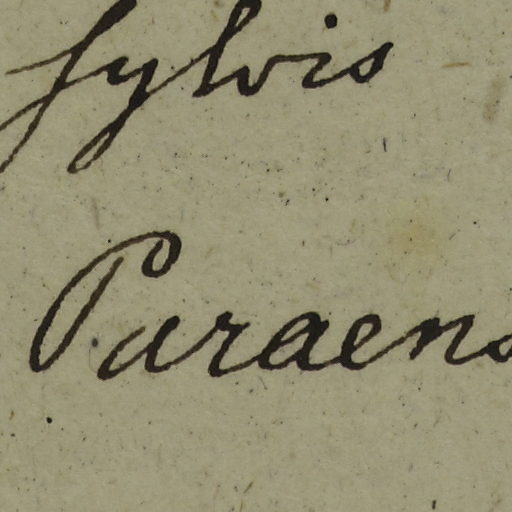 sylvis
Paraens